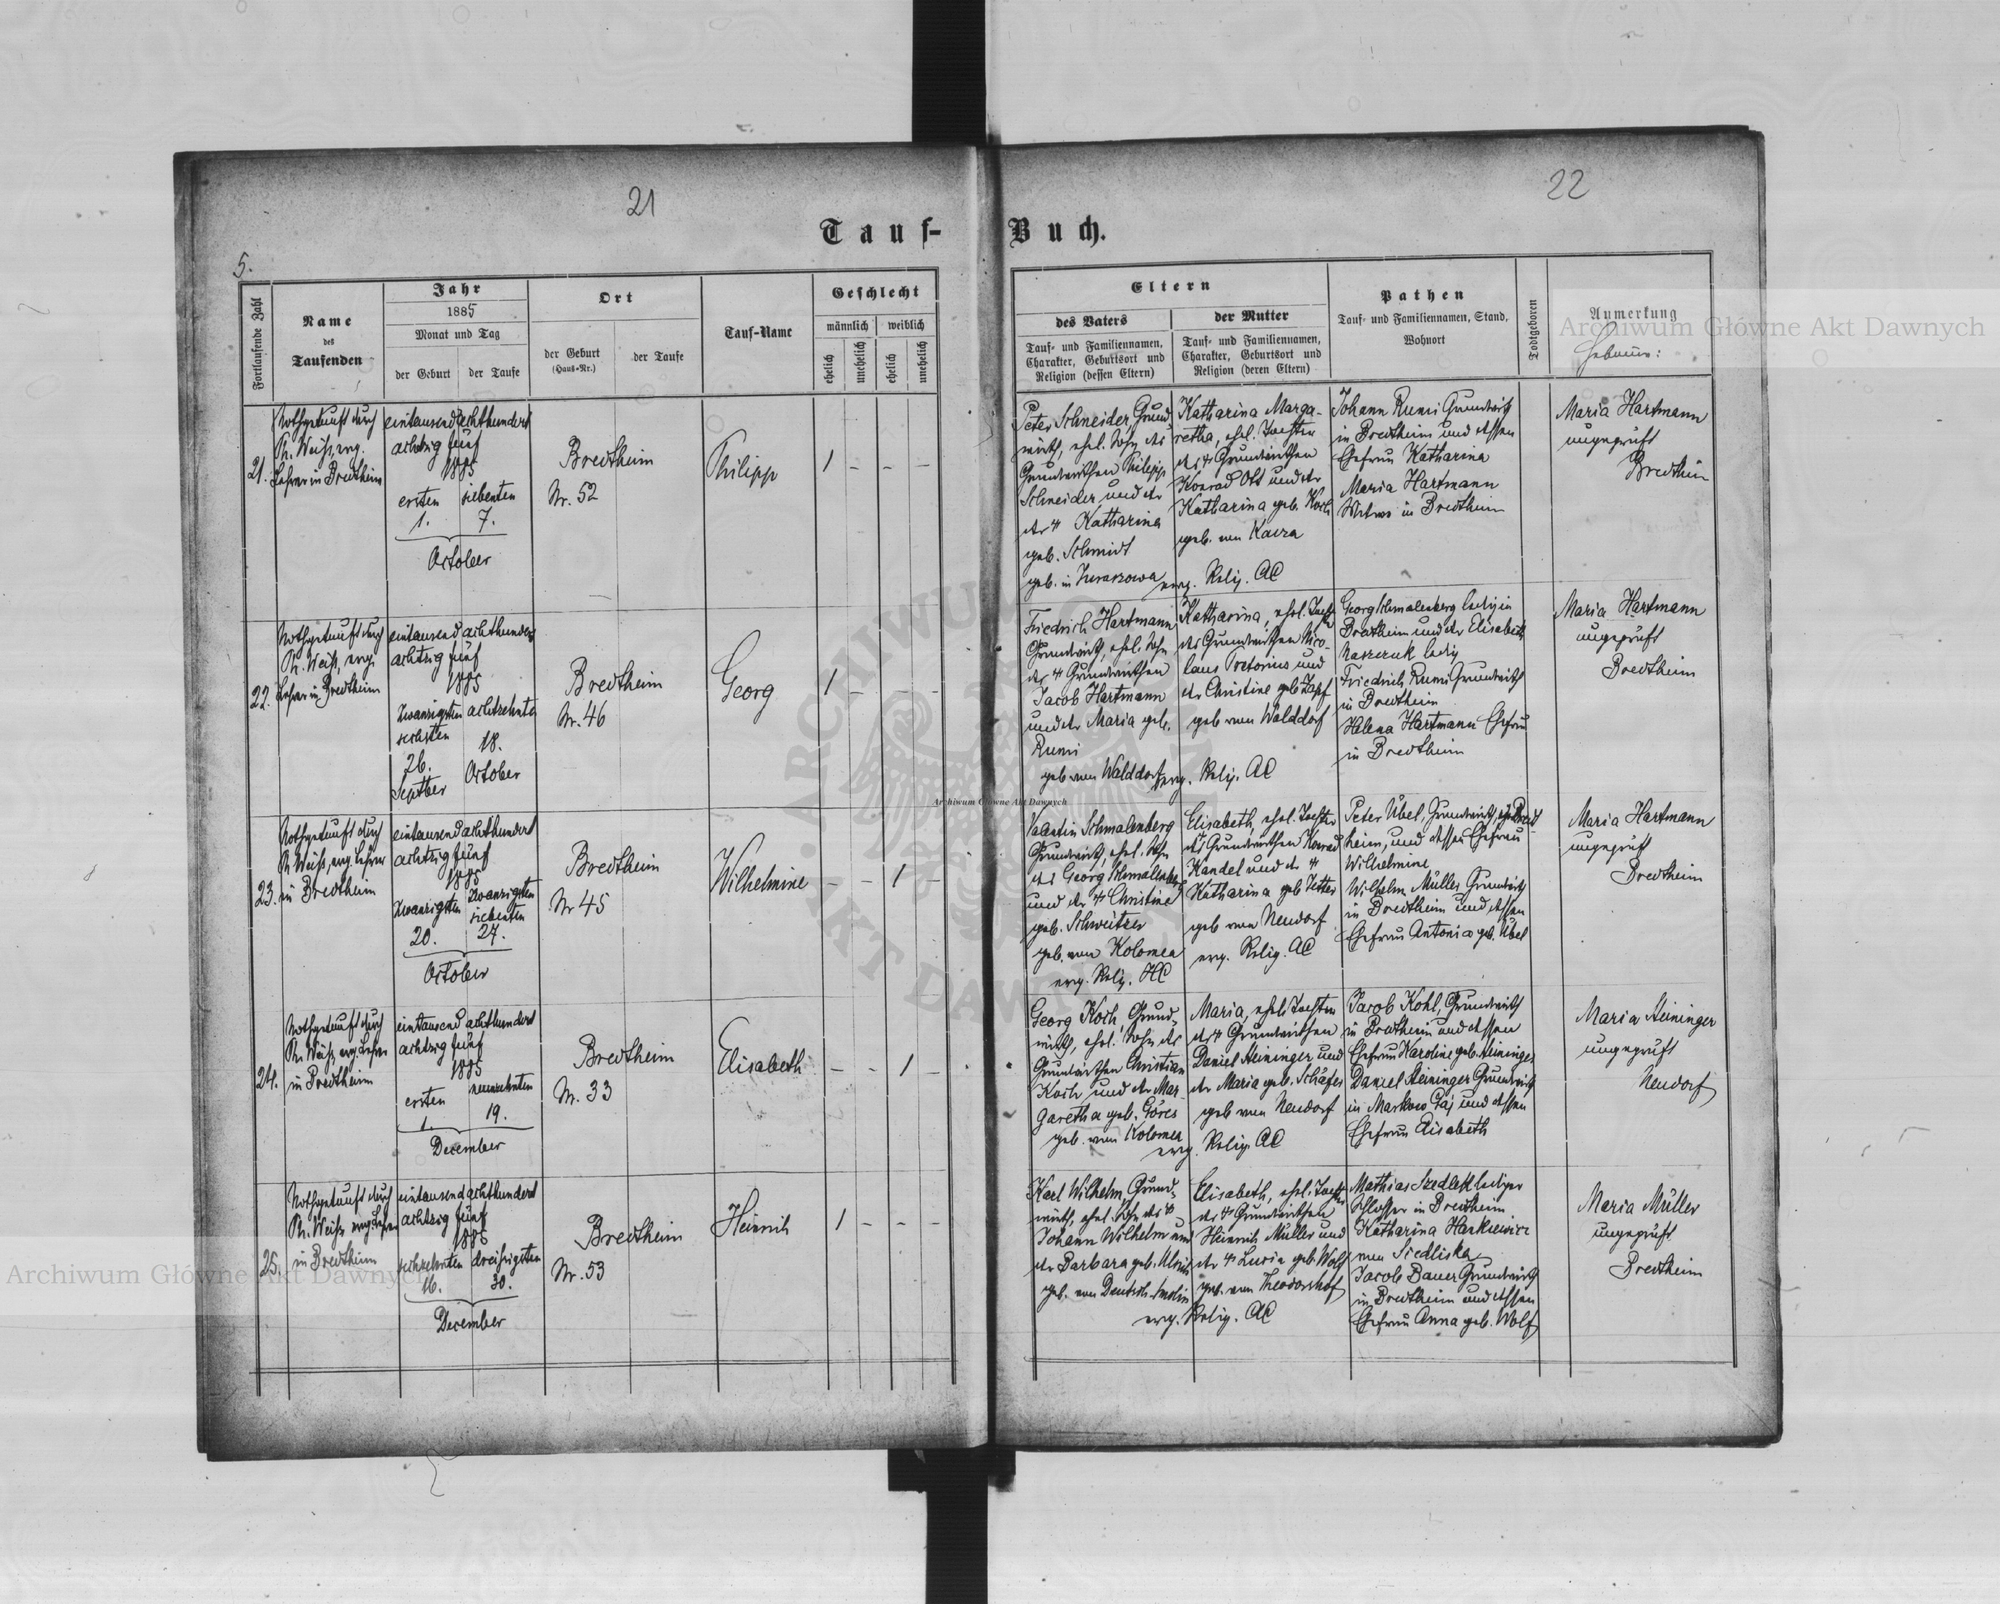 21
22
Tauf-
Buch.
5.
Fortlaufende Zahl
Name
des
Taufenden
Jahr
1885
Monat und Tag
der Geburt
der Taufe
Ort
der Geburt
(Haus-Nr.)
der Taufe
Tauf-Name
Geschlecht
männlich
weiblich
ehelich
unehelich
ehelich
unehelich
Eltern
des Vaters
Tauf- und Familiennamen,
Charakter, Geburtsort und
Religion (dessen Eltern)
der Mutter
Tauf- und Familiennamen,
Charakter, Geburtsort und
Religion (deren Eltern)
Pathen
Tauf- und Familiennamen, Stand,
Wohnort
Todtgeboren
Anmerkung
21.
Nothgetauft durch
Ph. Weiß, evng.
Lehrer in Bredtheim
eintausend achthundert
achtzig fünf
1885
ersten
siebenten
1.
7.
October
Bredtheim
Nr. 52
Philipp
1 - - -
Peter Schneider, Grund-
wirth, ehel. Sohn des
Grundwirthen Philipp
Schneider und der
Katharina
geb. Schmidt
geb. in
Katharina Marga-
retha, ehel. Tochter
des Grundwirthen
Konrad Ott und der
Katharina geb. Koch
geb. von
evng. Relig. AC
Johann Rumi Grundwirth
in Bredtheim und dessen
Ehefrau Katharina
Maria Hartmann
Witwe in Bredtheim
Maria Hartmann
ungeprüft
Bredtheim
22.
Nothgetauft durch
Ph. Weiß, evng.
Lehrer in Bredtheim
eintausend achthundert
achtzig fünf
1885
zwanzigsten
sechsten
achtzehnten
26.
18.
Septber
October
Bredtheim
Nr. 46
Georg
1 - - -
Friedrich Hartmann
Grundwirth, ehel. Sohn
des Grundwirthen
Jacob Hartmann
und der Maria geb.
Rumi
geb. von Walddorf
Katharina, ehel. Tochter
des Grundwirthen Nico-
laus Pretorius und
der Christine geb. Zapf
geb. von Walddorf
evng. Relig. AC
Georg Schmalenberg ledig in
Bredtheim und der Elisabeth
ledig
Friedrich Rumi Grundwirth
in Bredtheim
Helena Hartmann Ehefrau
in Bredtheim
Maria Hartmann
ungeprüft
Bredtheim
23.
Nothgetauft durch
Ph. Weiß, evng. Lehrer
in Bredtheim
eintausend achthundert
achtzig fünf
1885
zwanzigsten
zwanzigsten
siebenten
20.
27.
October
Bredtheim
Nr 45
Wilhelmine
- - 1 -
Valentin Schmalenberg
Grundwirth, ehel. Sohn
des Georg Schmalenberg
und der Christine
geb. Schweitzer
geb. von Kolomea
evng. Relig. HC
Elisabeth, ehel. Tochter
des Grundwirthen Konrad
Kandel und der
Katharina geb.
geb von Neudorf
evng. Relig. AC
Peter Übel, Grundwirth, in Bredt-
heim, und dessen Ehefrau
Wilhelmine
Wilhelm Müller Grundwirth
in Bredtheim und dessen
Ehefrau Antonia geb. Übel
Maria Hartmann
ungeprüft
Bredtheim
24.
Nothgetauft durch
Ph. Weiß, evng. Lehrer
in Bredtheim
eintausend achthundert
achtzig fünf
1885
ersten
neunzehnten
1.
19.
December
Bredtheim
Nr. 33
Elisabeth
- - 1 -
Georg Koch Grund-
wirth, ehel. Sohn des
Grundwirthen Christian
Koch und der Mar-
garetha geb. Göres
geb. von Kolomea
Maria, ehel. Tochter
des Grundwirthen
Daniel Heininger und
der Maria geb. Schäfer
geb von Neudorf
evng. Relig. AC
Jacob Kohl, Grundwirth
in Bredtheim und dessen
Ehefrau Karoline geb. Heininger
Daniel Heininger Grundwirth
in Markow Gaj und dessen
Ehefrau Elisabeth
Maria Heininger
ungeprüft
Neudorf
25.
Nothgetauft durch
Ph. Weiß, evng. Lehrer
in Bredtheim
eintausend achthundert
achtzig fünf
1885
sechzehnten
dreißigsten
16.
30.
December
Bredtheim
Nr. 53
Heinrich
1 - - -
Karl Wilhelm, Grund-
wirth, ehel. Sohn des
Johann Wilhelm und
der Barbara geb. Ulrich
geb. von Deutsch-
Elisabeth, ehel. Tochter
des Grundwirthen
Heinrich Müller und
der Luzia geb. Wolf
geb. von Theodorshof
evng. Relig. AC
Mathias Szedlak lediger
Schlosser in Bredtheim
Katharina Harkiewicz
von Siedliska
Jacob Bauer Grundwirth
in Bredtheim und dessen
Ehefrau Anna geb. Wolf
Maria Müller
ungeprüft
Bredtheim
Archiwum Główne Akt Dawnych
Archiwum Główne Akt Dawnych
Archiwum Główne Akt Dawnych
ARCHIWUM
AKT DAWNYCH